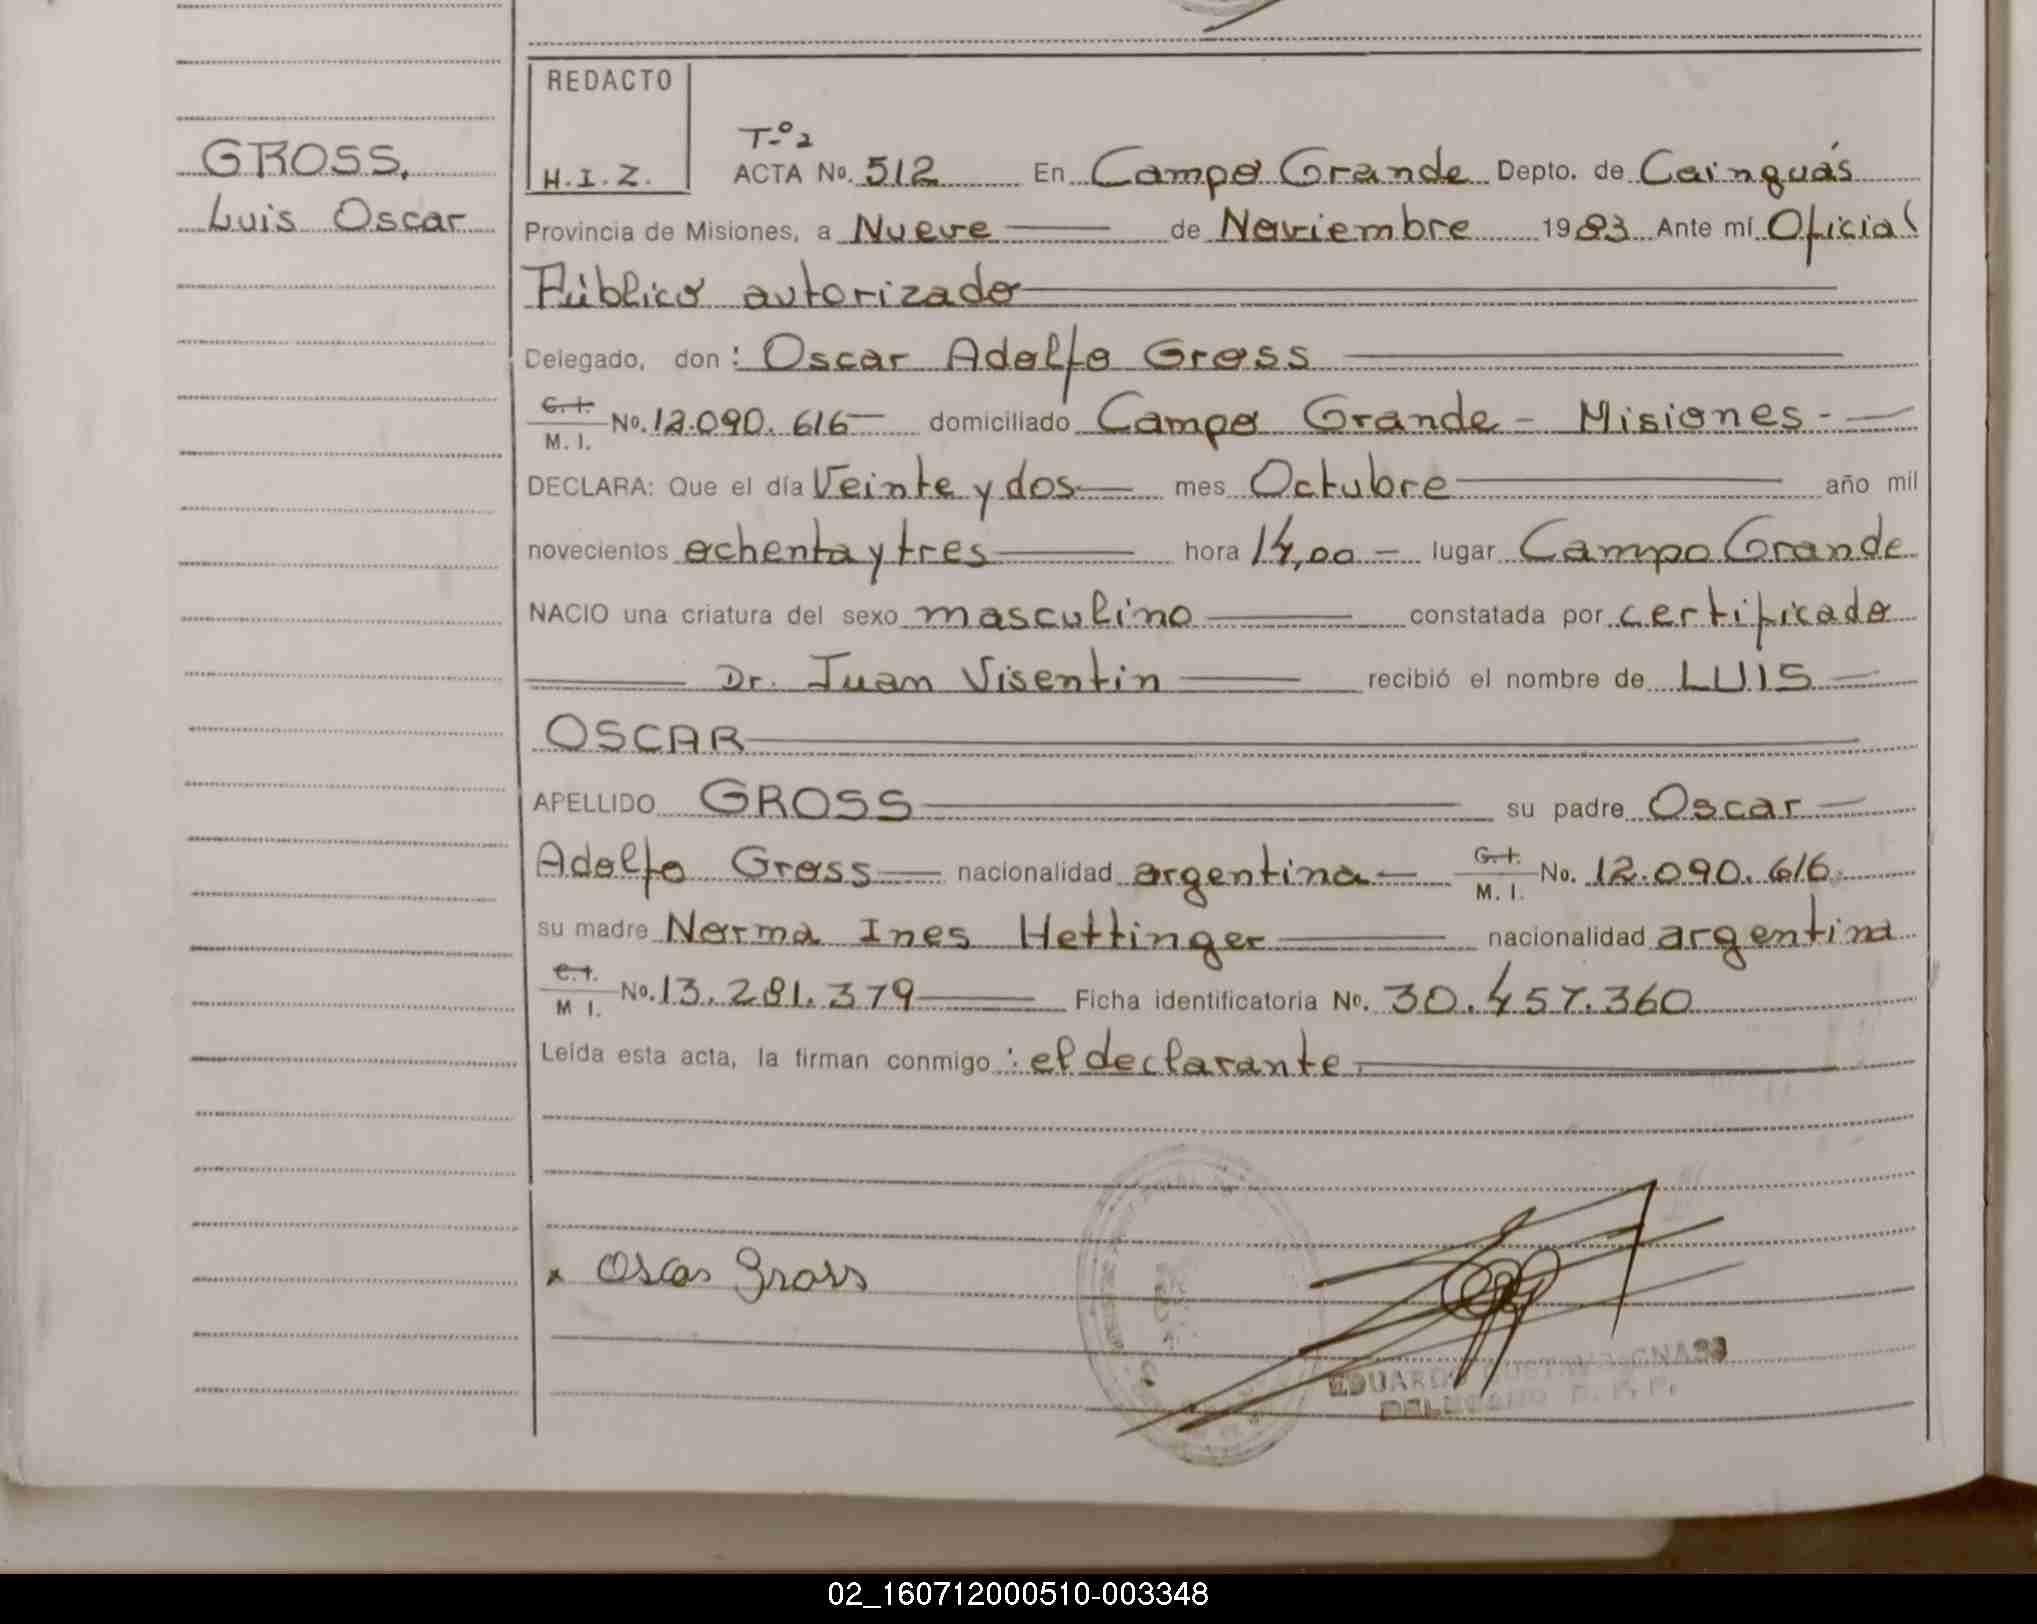 GROSS,
Luis Oscar
REDACTO
H.I.Z.
T-º2
ACTA No. 512 En Campo Grande Depto. de Cainguás
Provincia de Misiones, a Nueve de Noviembre 1983 Ante mí Oficial
Público autorizado
Delegado, don: Oscar Adolfo Gross
C.I. M.I. No. 12.090.616 domiciliado Campo Grande - Misiones -
DECLARA: Que el día Veinte y dos mes Octubre año mil
novecientos ochenta y tres hora 14,00 - lugar Campo Grande
NACIO una criatura del sexo masculino constatada por certificado
Dr. Juan Visentin recibió el nombre de LUIS
OSCAR
APELLIDO GROSS su padre Oscar
Adolfo Gross nacionalidad argentina C.I. M.I. No. 12.090.616
su madre Norma Ines Hettinger nacionalidad argentina
C.I. M I. No. 13.281.379 Ficha identificatoria No. 30.457.360
Leída esta acta, la firman conmigo: el declarante
x Oscar Gross
EDUARDO
02_160712000510-003348